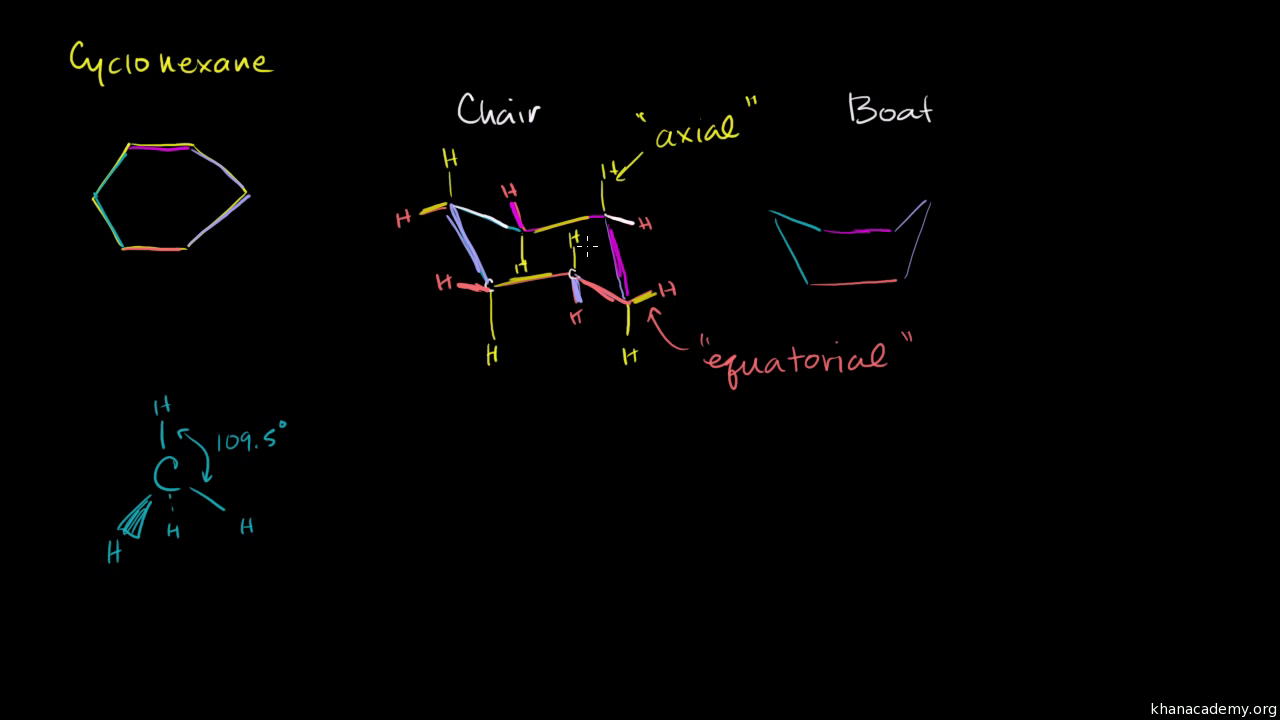 Cyclohexane
Chair
"axial"
Boat
H
H
H
H
H
H
H
H
C
C
H
H
H
H
H
"equatorial"
H
109.5°
C
H
H
H
khanacademy.org